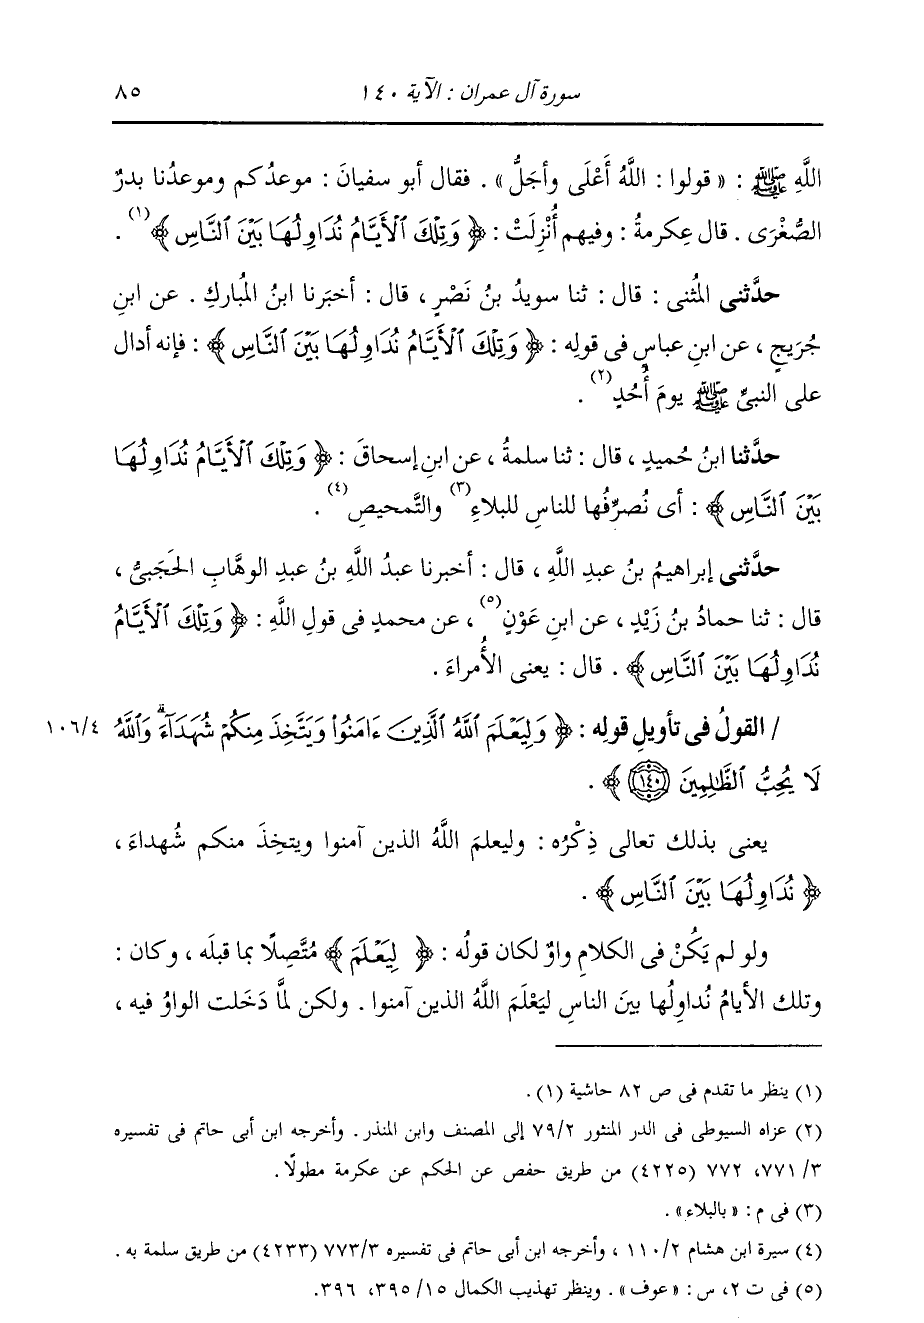 سورة آل عمران : الآية ١٤٠ ٨٥
اللَّهِ ﷺ : « قولوا : اللَّهُ أَعْلَى وأجَلُّ » . فقال أبو سفيانَ : موعدُكم وموعدُنا بدرٌ
الصُّغْرَى . قال عِكرمةُ : وفيهم أُنْزِلَتْ : ﴿ وَتِلْكَ ٱلْأَيَّامُ نُدَاوِلُهَا بَيْنَ ٱلنَّاسِ ﴾(١) .
حدَّثنى المُثنى : قال : ثنا سويدُ بنُ نَصْرٍ ، قال : أخبَرنا ابنُ المُباركِ . عن ابنِ
جُرَيجٍ ، عن ابنِ عباسٍ فى قولِه : ﴿ وَتِلْكَ ٱلْأَيَّامُ نُدَاوِلُهَا بَيْنَ ٱلنَّاسِ ﴾ : فإنه أدال
على النبىِّ ﷺ يومَ أُحُدٍ(٢) .
حدَّثنا ابنُ حُميدٍ ، قال : ثنا سلمةُ ، عن ابنِ إسحاقَ : ﴿ وَتِلْكَ ٱلْأَيَّامُ نُدَاوِلُهَا
بَيْنَ ٱلنَّاسِ ﴾ : أى نُصرِّفُها للناسِ للبلاءِ(٣) والتَّمحيصِ(٤) .
حدَّثنى إبراهيمُ بنُ عبدِ اللَّهِ ، قال : أخبرنا عبدُ اللَّهِ بنُ عبدِ الوهَّابِ الحَجَبىُّ ،
قال : ثنا حمادُ بنُ زَيْدٍ ، عن ابنِ عَوْنٍ(٥) ، عن محمدٍ فى قولِ اللَّهِ : ﴿ وَتِلْكَ ٱلْأَيَّامُ
نُدَاوِلُهَا بَيْنَ ٱلنَّاسِ ﴾ . قال : يعنى الأُمراءَ .
/ القولُ فى تأويلِ قولِه : ﴿ وَلِيَعْلَمَ ٱللَّهُ ٱلَّذِينَ ءَامَنُوا۟ وَيَتَّخِذَ مِنكُمْ شُهَدَآءَ ۗ وَٱللَّهُ ١٠٦/٤
لَا يُحِبُّ ٱلظَّـٰلِمِينَ ١٤٠ ﴾ .
يعنى بذلك تعالى ذِكْرُه : وليعلمَ اللَّهُ الذين آمنوا ويتخِذَ منكم شُهداءَ ،
﴿ نُدَاوِلُهَا بَيْنَ ٱلنَّاسِ ﴾ .
ولو لم يَكُنْ فى الكلامِ واوٌ لكان قولُه : ﴿ لِيَعْلَمَ ﴾ مُتَّصِلًا بما قبلَه ، وكان :
وتلك الأيامُ نُداوِلُها بينَ الناسِ ليَعْلَمَ اللَّهُ الذين آمنوا . ولكن لمَّا دَخَلت الواوُ فيه ،
(١) ينظر ما تقدم فى ص ٨٢ حاشية (١) .
(٢) عزاه السيوطى فى الدر المنثور ٧٩/٢ إلى المصنف وابن المنذر . وأخرجه ابن أبى حاتم فى تفسيره
٣/ ٧٧١، ٧٧٢ (٤٢٢٥) من طريق حفص عن الحكم عن عكرمة مطولًا .
(٣) فى م : « بالبلاء » .
(٤) سيرة ابن هشام ١١٠/٢ ، وأخرجه ابن أبى حاتم فى تفسيره ٧٧٣/٣ (٤٢٣٣) من طريق سلمة به .
(٥) فى ت ٢، س : « عوف » . وينظر تهذيب الكمال ١٥/ ٣٩٥، ٣٩٦.